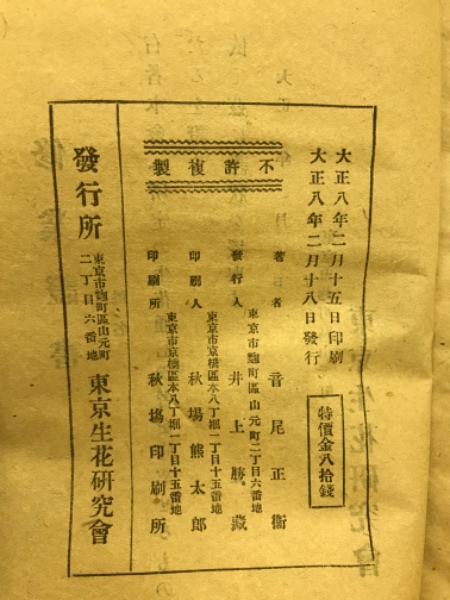 大正八年二月十五日印刷
大正八年二月十八日發行
特價金八拾錢
不許複製
著者 音尾正衞
東京市麴町區山元町二丁目六番地
發行人 井上勝藏
東京市京橋區本八丁堀一丁目十五番地
印刷人 秋場熊太郎
東京市京橋區本八丁堀一丁目十五番地
印刷所 秋場印刷所
發行所
東京市麴町區山元町
二丁目六番地
東京生花研究會